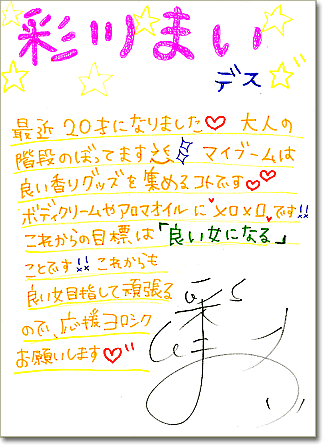 彩川まい
デス
最近20才になりました♡ 大人の
階段のぼってます!! マイブームは
良い香りグッズを集めるコトです♡♡
ボディクリームやアロマオイルに♥メロメロ♥です!!
これからの目標は「良い女になる」
ことです!! これからも
良い女目指して頑張る
ので、応援ヨロシク
お願いします♡